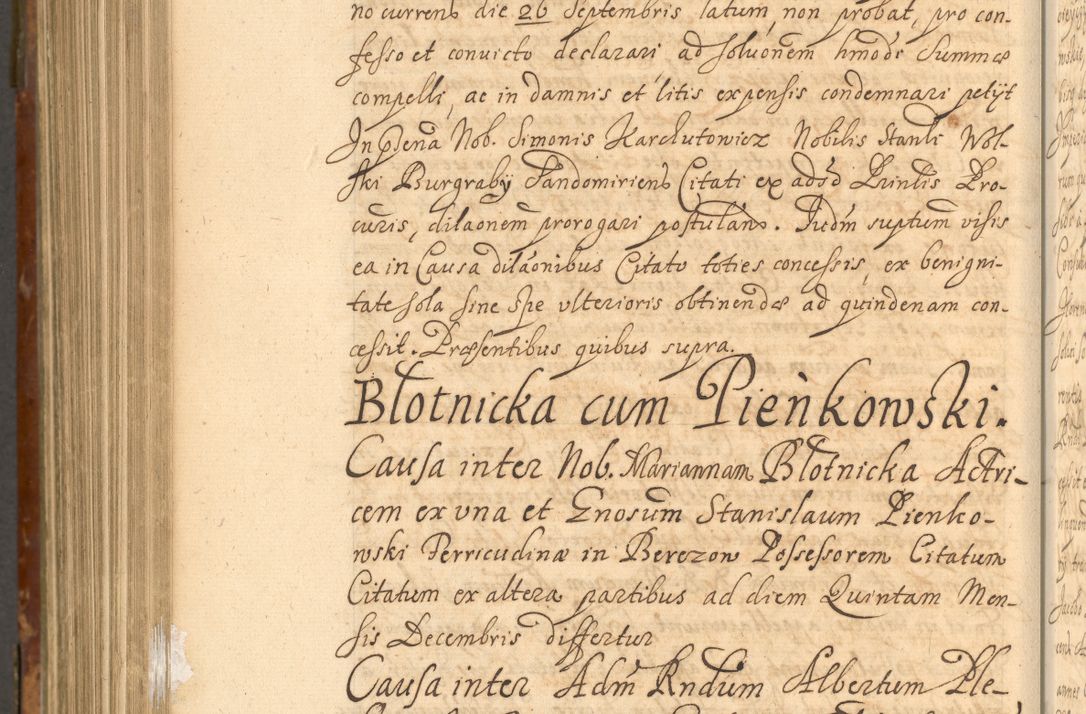 no currens die 26 Septembris latum, non probat, pro con-
fesso et convicto declarari ad soluōnem hmōdi Summæ
compelli, ac in damnis et litis expensis condemnari petijt
In pñtia Nob. Simonis Karchutowicz Nobilis Stanli Wol-
ski Burgrabij Sandomiriens Citati ex adsō Prinlis Pro-
curis, dilaōnem prorogari postulans. Iudm suptum visis
ea in Causa dilaōnibus Citato toties concessis, ex benigni-
tate sola sine spe vlterioris obtinendæ ad quindenam con-
cessit. Præsentibus quibus supra.
Błotnicka cum Pieńkowski.
Causa inter Nob. Mariannam Błotnicka Actri-
cem ex vna et Gnosum Stanislaum Pienko-
wski Perricudinæ in Berezow Possessorem Citatum
Citatum ex altera partibus ad diem Quintam Men-
sis Decembris differtur
Causa inter Adm Rndum Albertum Ple-